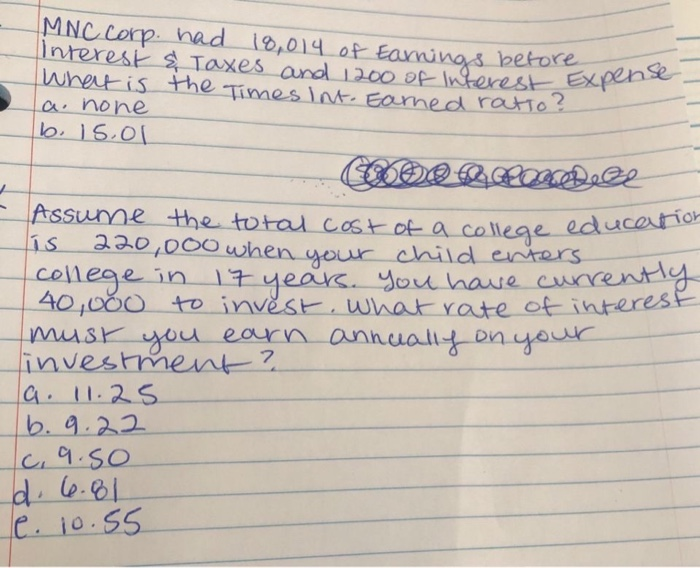 MNC Corp. had 18,014 of Earnings before
Interest & Taxes and 1200 of Interest Expense
What is the Times Int. Earned ratio?
a. none
b. 15.01
Assume the total cost of a college education
is 220,000 when your child enters
college in 17 years. You have currently
40,000 to invest. What rate of interest
must you earn annually on your
investment?
a. 11.25
b. 9.22
c. 9.50
d. 6.81
e. 10.55